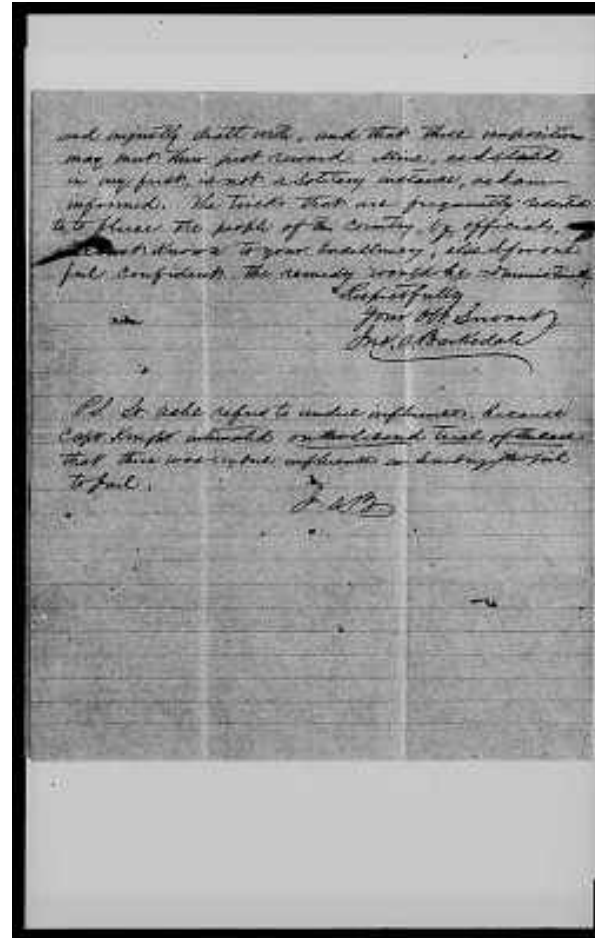 and unjustly dealt with, and that those imposition
may meet their just reward. Mine, as I stated
in my first, is not a solitary instance, as I am
informed. The tricks that are frequently resorted
to to fleece the people of the Country, by officials,
not known to your Excellency, else I for one
feel confident the remedy would be administered.
Respectfully
Your Obt. Servant
Jno. A Barksdale
PS Lt Ashe refers to undue influences. Because
Capt Knight intimated on the second trial of the case
that there was undue influence in sending the
to jail.
J A B